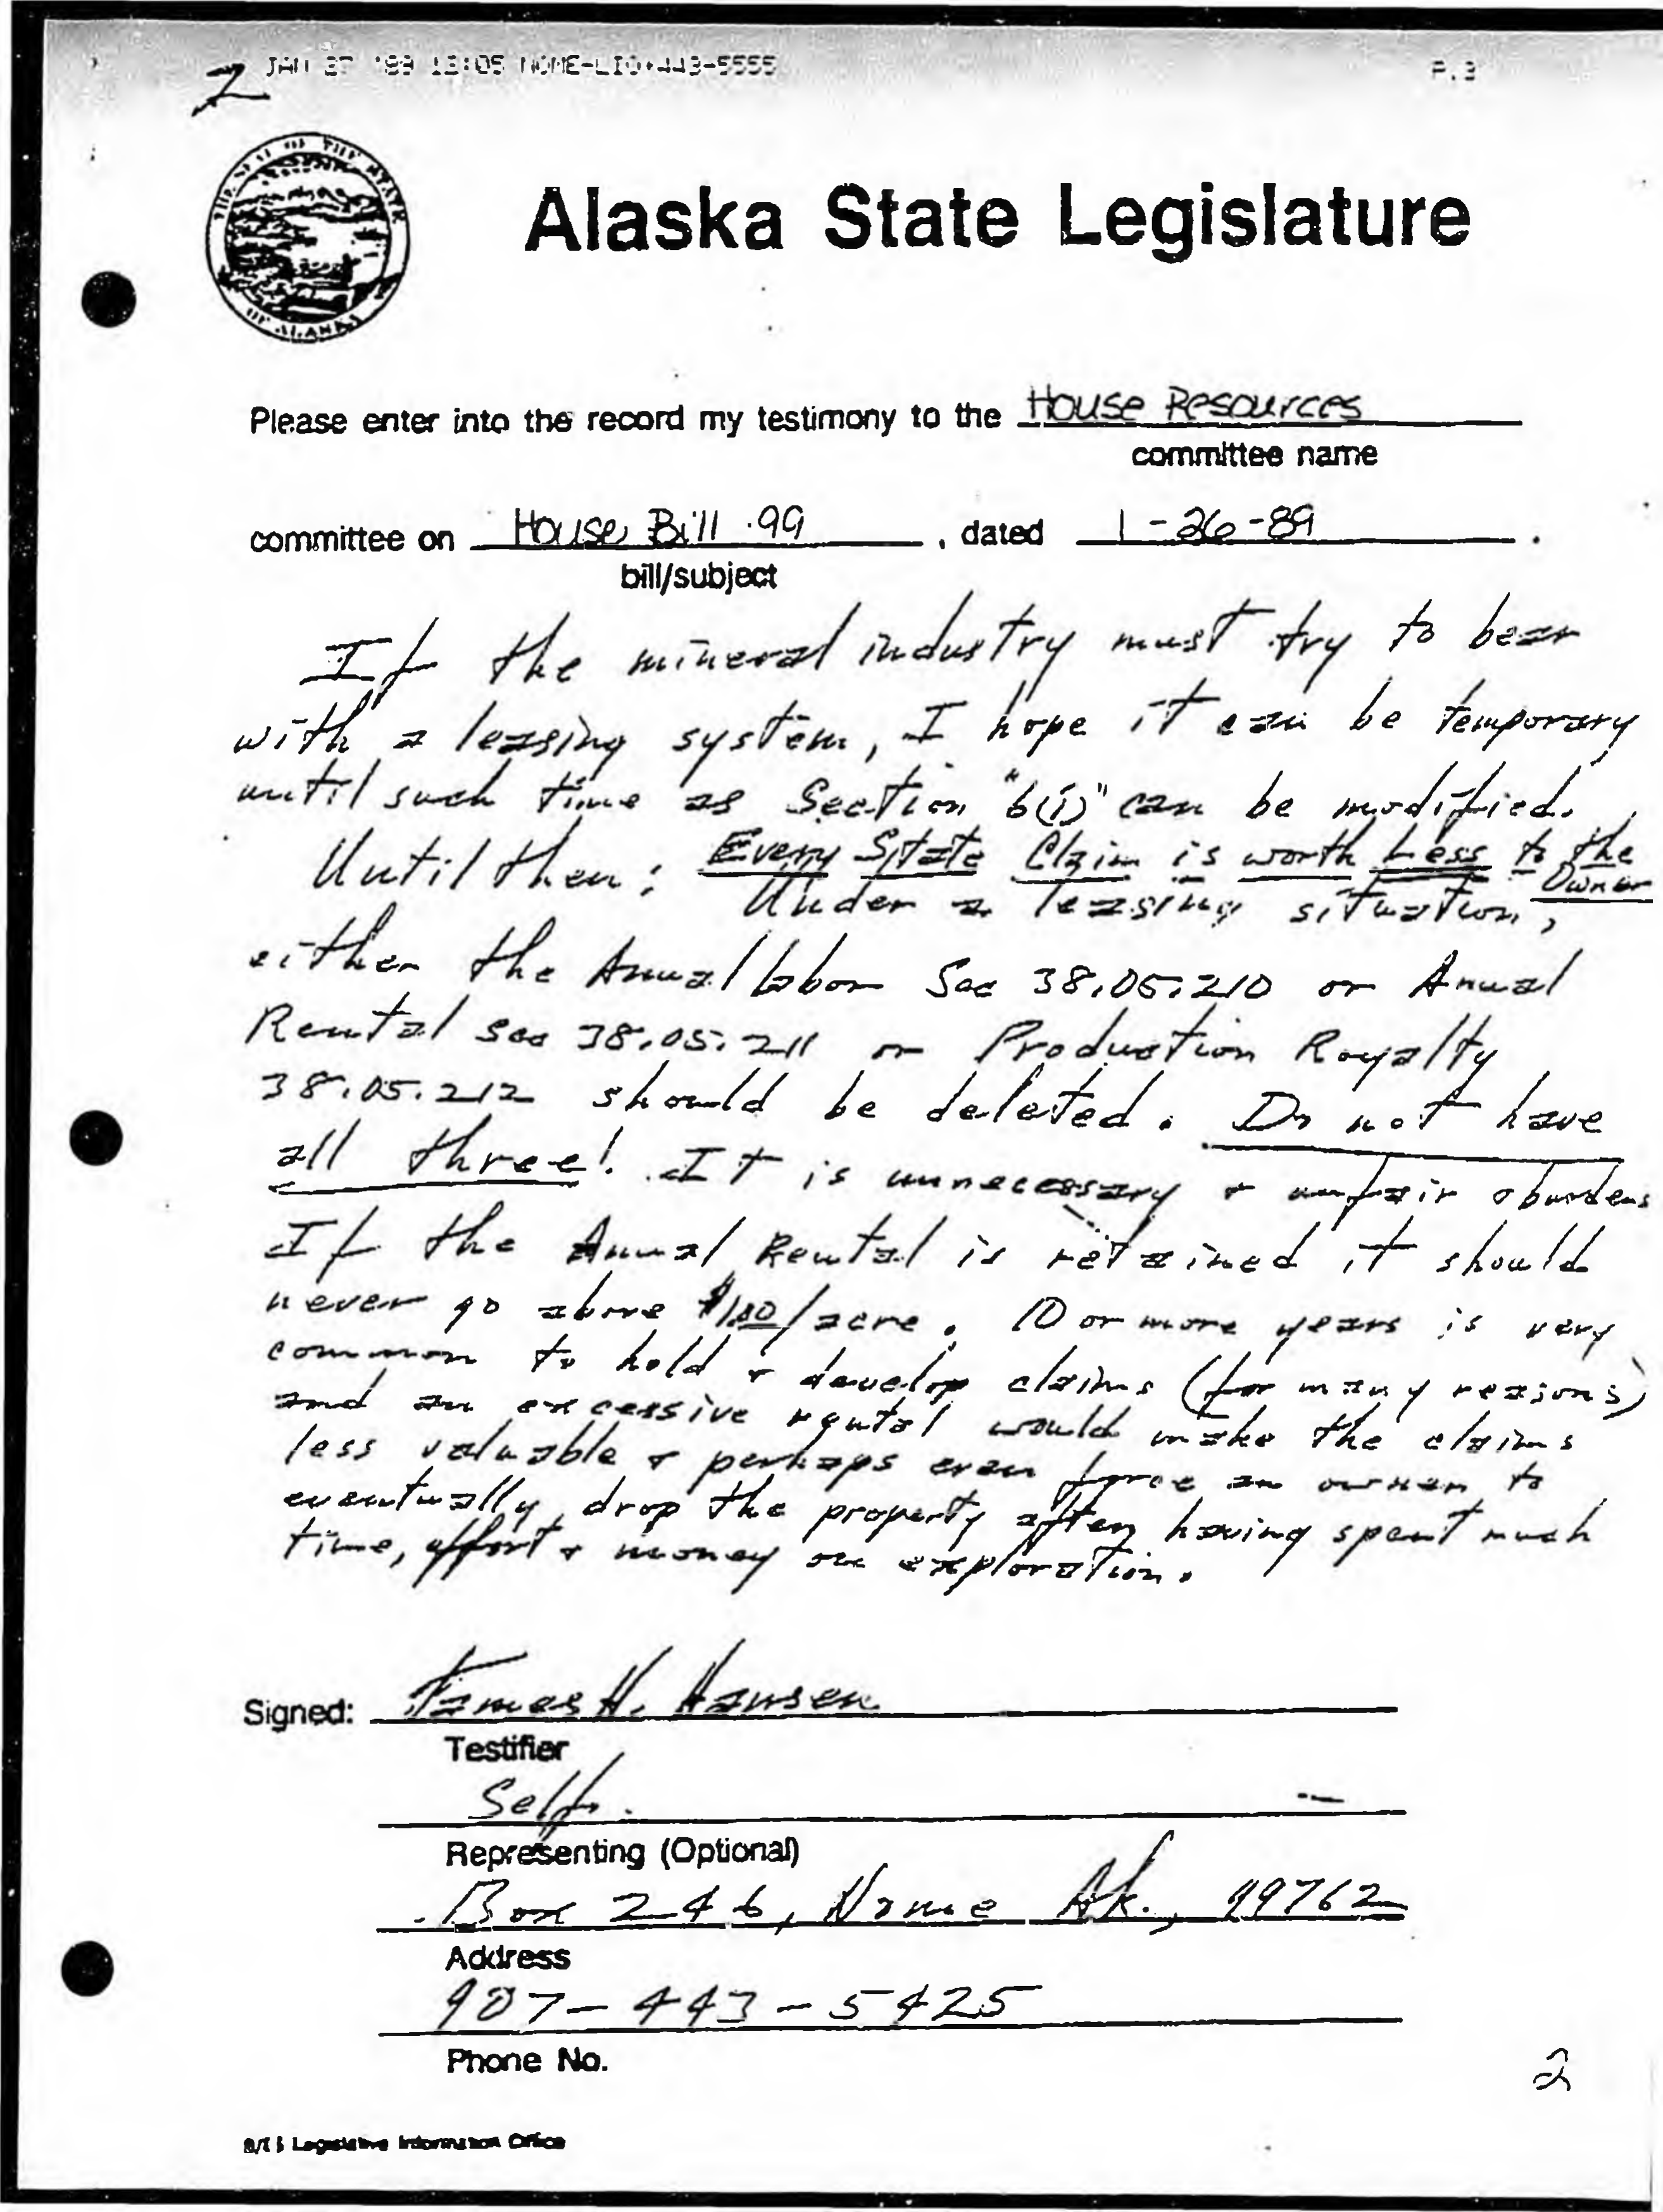 2 JAN 27 '89 13:05 NOME-LIO*443-5555 P.3
THE SEAL OF THE STATE OF ALASKA
Alaska State Legislature
Please enter into the record my testimony to the House Resources
committee name
committee on House Bill 99, dated 1-26-89.
bill/subject
If the mineral industry must try to bear
with a leasing system, I hope it can be temporary
until such time as Section "6(i)" can be modified.
Until then: Every State Claim is worth Less to the Owner
Under a leasing situation,
either the Anual labor Sec 38.05.210 or Anual
Rental sec 38.05.211 or Production Royalty
38.05.212 should be deleted. Do not have
all three! It is unnecessary & unfair burdens
If the Anual Rental is retained it should
never go above $1.00/acre. 10 or more years is very
common to hold & develop claims (for many reasons)
and an excessive rental would make the claims
less valuable & perhaps even force an owner to
eventually drop the property after having spent much
time, effort & money on exploration.
Signed: James H. Hansen
Testifier
Self.
Representing (Optional)
Box 246, Nome Ak., 99762
Address
907-443-5425
Phone No.
2
Legislative Information Office